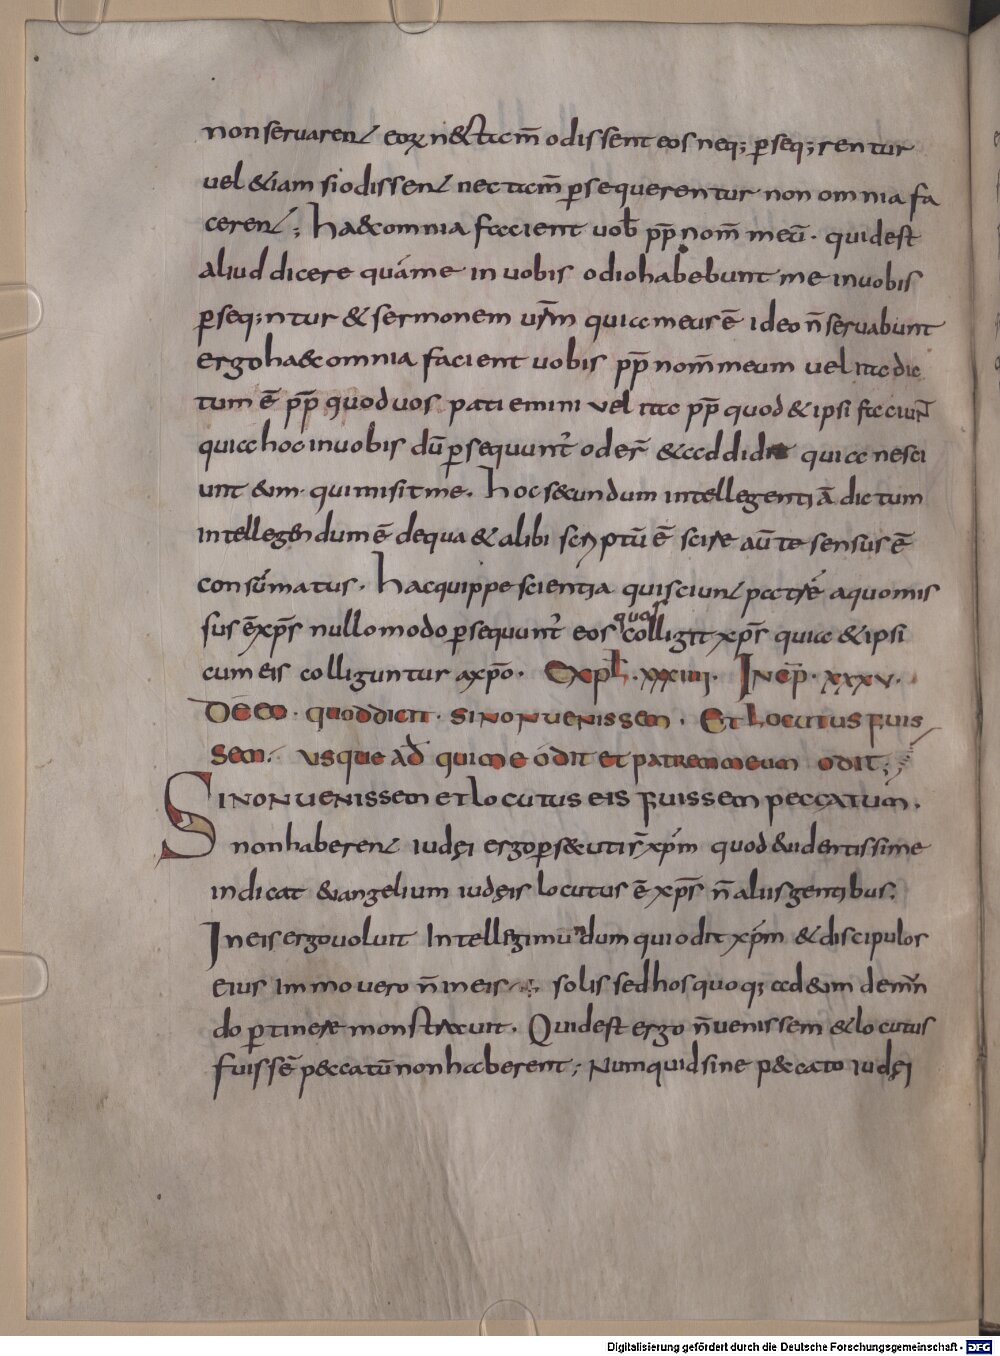 non seruarent eorum n& tam̄ odissent eos neq; p̱seq;rentur
uel &iam si odissent nec tam̄ p̱sequerentur non omnia fa
cerent; ha&comnia faccient uob̄ pp̄ nom̄ meū. quid est
aliud dicere quáme in uobis odio habebunt me in uobis
p̱seq;ntur & sermonem ur̄m quia meus ē ideo n̄ seruabunt
ergo ha&comnia facient uobis pp̄ nom̄ meum uel ita dic
tum ē pp̄ quod uos patiemini uel ita pp̄ quod & ipsi faciunt
quia hoc in uobis dū p̱sequunt̄ oder̄ &addidit quia nesci
unt eum qui misit me. hoc s&cundum intellegentiā dictum
intellegendum ē de qua & alibi scriptū ē scire aūte sensus ē
consūmatus. hac quippe scientia qui sciunt patrē a quo mis
sus ē xp̄s nullo modo p̱sequunt̄ eos quos colligit xp̄s quia & ipsi
cum eis colliguntur a xp̄o. Expl̄. xxxiiii. Incp̄. xxxv.
De eo. quod dicit. si non uenissem. Et locutus fuis
sem. usque ad qui me odit et patrem meum odit;
Si non uenissem et locutus eis fuissem peccatum.
non haberent iudęi ergo p̱s&cuti s̄ xp̄m quod &uidentissime
indicat &uangelium iudęis locutus ē xp̄s n̄ aliis gentibus.
In eis ergo uoluit intellegi mundum qui odit xp̄m & discipulos
eius immo uero n̄ in eis solis sed hos quoq; ad eum dem mun
do p̱tinere monstrauit. Quid est ergo n̄ uenissem & locutus
fuissē p&ccatū non haberent; Numquid sine p&ccato iudęi
Digitalisierung gefördert durch die Deutsche Forschungsgemeinschaft - DFG